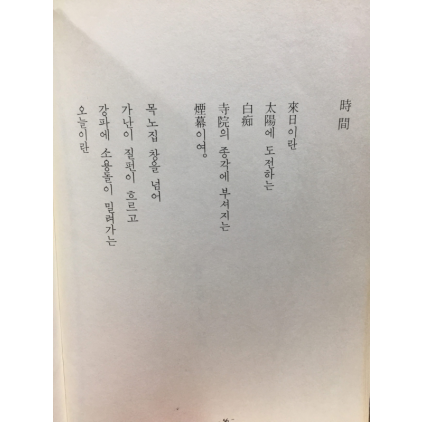 時間
來日이란
太陽에 도전하는
白痴
寺院의 종각에 부서지는
煙幕이여.
목노집 창을 넘어
가난이 질펀이 흐르고
강파에 소용돌이 밀려가는
오늘이란